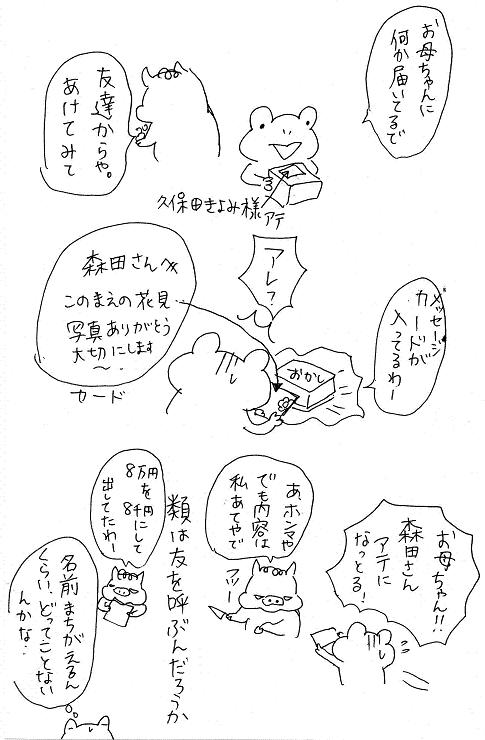 お母ちゃんに
何か届いてるで
友達からや。
あけてみて
久保田きよみ様
アテ
アレ?
メッセージ
カードが
入ってるわー
おかし
森田さんへ
このまえの花見
写真ありがとう
大切にします
〜.
カード
お母ちゃん!!
森田さん
アテに
なっとる!
あ、ホンマや
でも内容は
私あてやで
フツー
類は友を呼ぶんだろうか
8万円を
8千円にして
出してたわー
名前まちがえるん
くらい、どってことない
んかな…